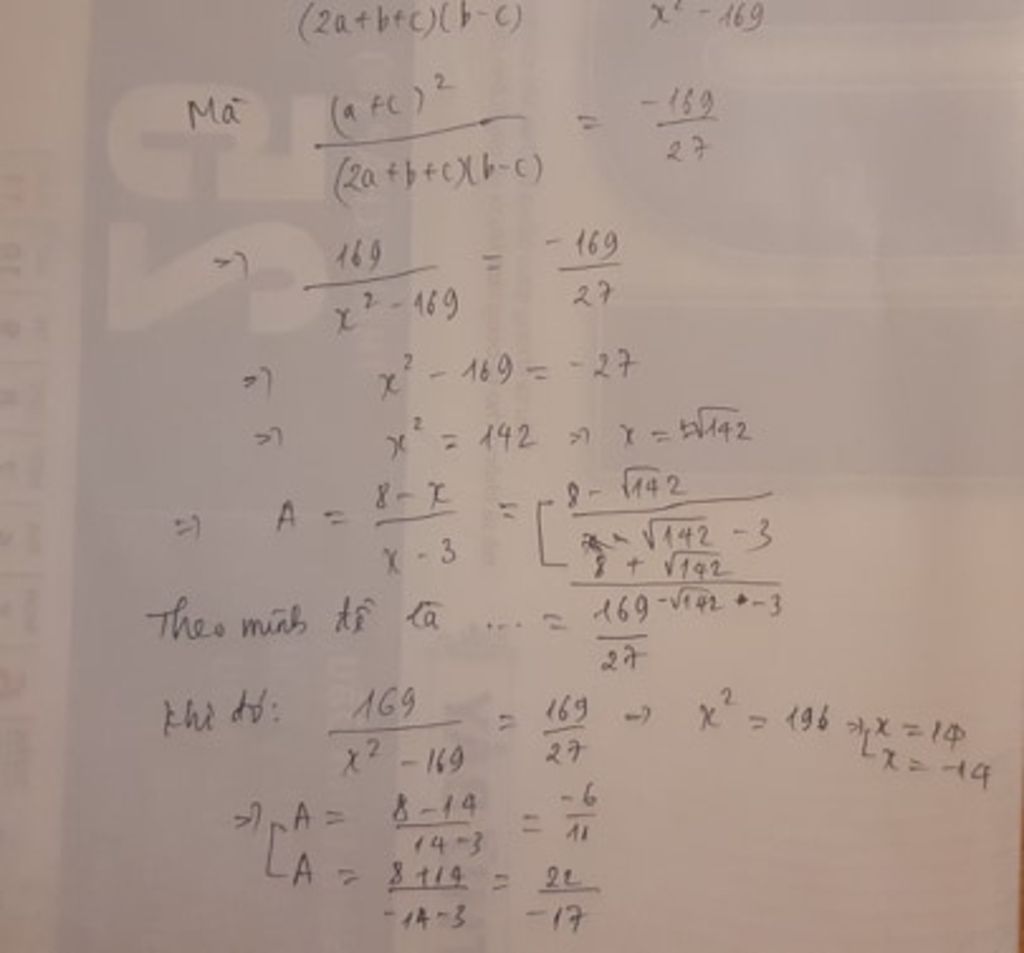 (2a+b+c)(b-c) x² - 169
Mà (a+c)² / (2a+b+c)(b-c) = -169/27
=> 169 / x² - 169 = -169/27
=> x² - 169 = -27
=> x² = 142 => x = √142
=> A = 8-x / x-3 = [ 8-√142 / √142 - 3
8 + √142 / -√142 - 3
Theo mình đề là ... = 169/27
Khi đó: 169 / x² - 169 = 169/27 => x² = 196 => [ x = 14
x = -14
=> [ A = 8-14 / 14-3 = -6/11
A = 8+14 / -14-3 = 22/-17